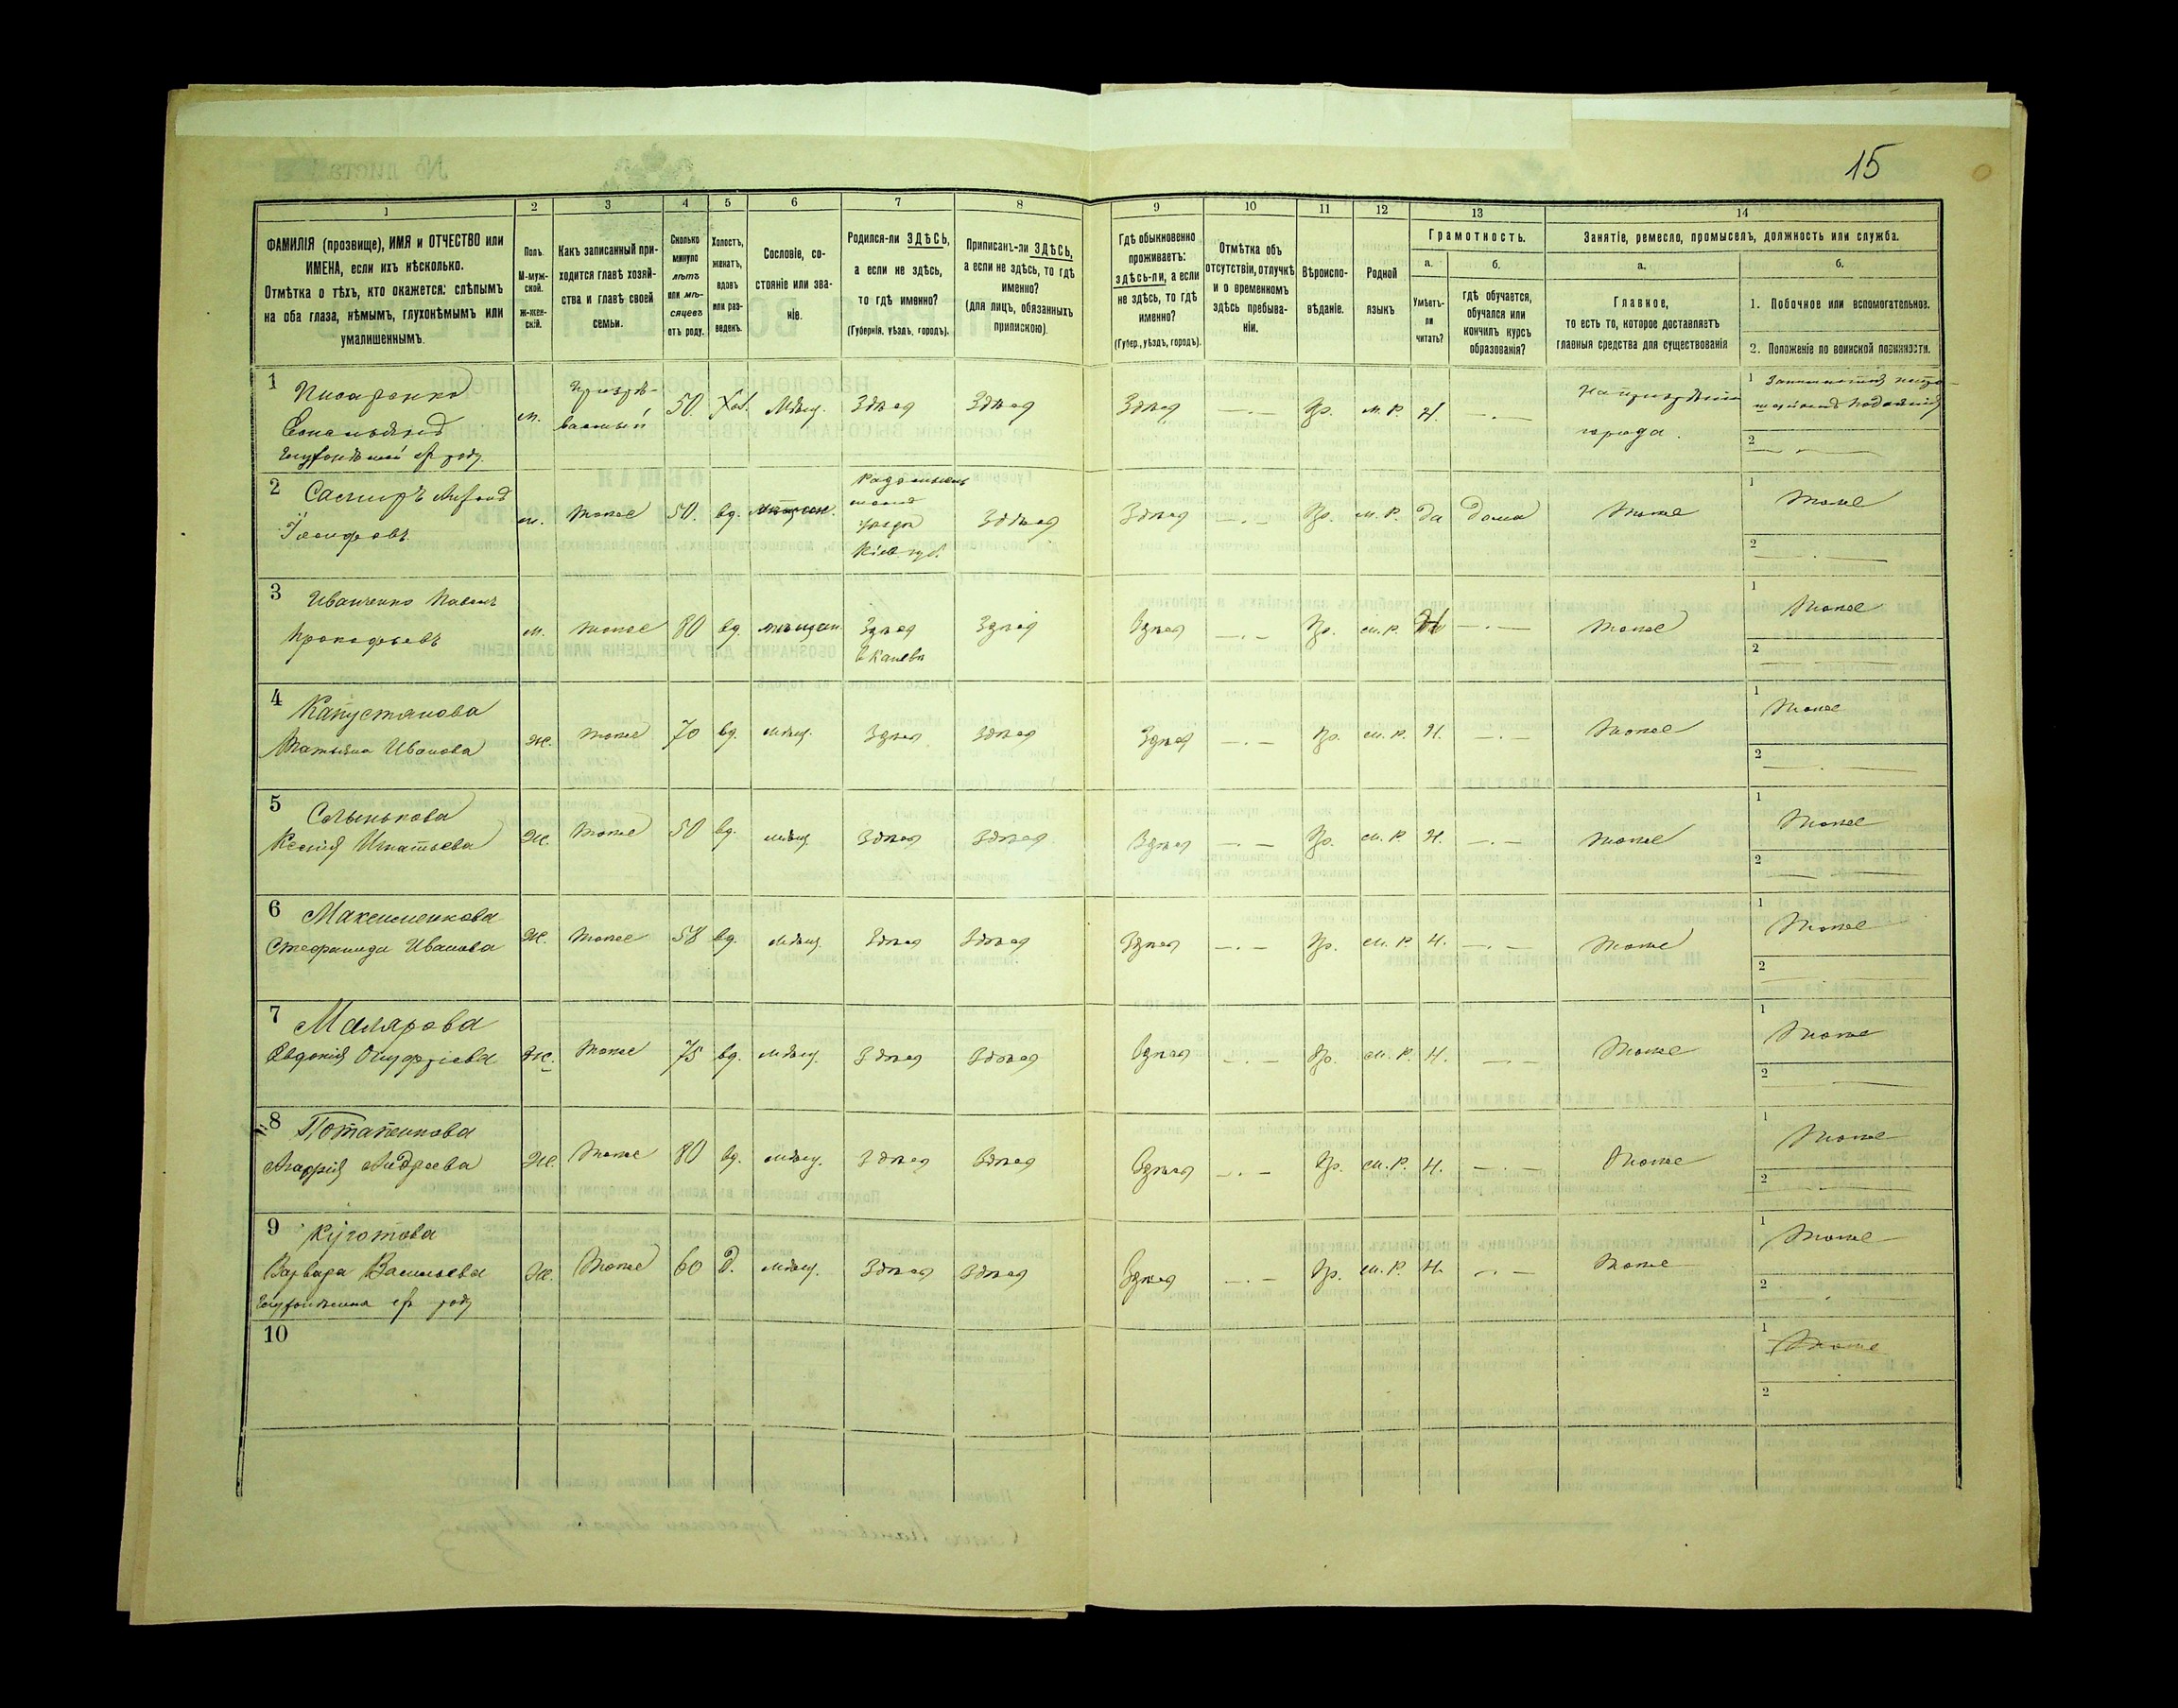 15
1
2
3
4
5
6
7
8
9
10
11
12
13
14
ФАМИЛІЯ (прозвище), ИМЯ и ОТЧЕСТВО или
ИМЕНА, если ихъ нѣсколько.
Отмѣтка о тѣхъ, кто окажется: слѣпымъ
на оба глаза, нѣмымъ, глухонѣмымъ или
умалишеннымъ.
Полъ.
М-муж-
ской.
ж-жен-
скій.
Какъ записанный при-
ходится главѣ хозяй-
ства и главѣ своей
семьи.
Сколько
минуло
лѣтъ
или мѣ-
сяцевъ
отъ роду.
Холостъ,
женатъ,
вдовъ
или раз-
веденъ.
Сословіе, со-
стояніе или зва-
ніе.
Родился-ли ЗДѢСЬ,
а если не здѣсь,
то гдѣ именно?
(Губернія, уѣздъ, городъ).
Приписанъ-ли ЗДѢСЬ,
а если не здѣсь, то гдѣ
именно?
(для лицъ, обязанныхъ
припискою).
Гдѣ обыкновенно
проживаетъ:
здѣсь-ли, а если
не здѣсь, то гдѣ
именно?
(Губер., уѣздъ, городъ).
Отмѣтка объ
отсутствіи, отлучкѣ
и о временномъ
здѣсь пребыва-
ніи.
Вѣроиспо-
вѣданіе.
Родной
языкъ
Грамотность.
а.
Умѣетъ-
ли
читать?
б.
гдѣ обучается,
обучался или
кончилъ курсъ
образованія?
Занятіе, ремесло, промыселъ, должность или служба.
а.
Главное,
то есть то, которое доставляетъ
главныя средства для существованія
б.
1. Побочное или вспомогательное.
2. Положеніе по воинской повинности.
1
Писаренко
м. 50. Хол. Мѣщ. Здѣсь Здѣсь Здѣсь Пр. м. р. Н.
города.
1
2
2
Іосифовъ
м. тоже 50. вд. Здѣсь Здѣсь Пр. м. р. да дома тоже
уѣзда
Кіев. губ.
1 тоже
2
3 Иванченко Павелъ
Прокофьевъ м. тоже 80 вд. мѣщан. Здѣсь Здѣсь Здѣсь Пр. м. р. тоже
в Каневѣ
1 тоже
2
4 Капустянова
Татьяна Иванова ж. тоже 70 вд. мѣщ. Здѣсь Здѣсь Здѣсь Пр. м. р. Н. тоже
1 тоже
2
5
Ксенія Игнатьева ж. тоже 50 вд. мѣщ. Здѣсь Здѣсь Здѣсь Пр. м. р. Н. тоже
1 тоже
2
6 Максименкова
Стефанида Иванова ж. тоже 58 вд. мѣщ. Здѣсь Здѣсь Здѣсь Пр. м. р. Н. тоже
1 тоже
2
7 Малярова
Евдокія Онуфріева ж. тоже 75 вд. мѣщ. Здѣсь Здѣсь Здѣсь Пр. м. р. Н. тоже
1 тоже
2
8 Потапенкова
Агафія Андреева ж. тоже 80 вд. мѣщ. Здѣсь Здѣсь Здѣсь Пр. м. р. Н. тоже
1 тоже
2
9
Варвара Васильева ж. тоже 60 д. мѣщ. Здѣсь Здѣсь Здѣсь Пр. м. р. Н. тоже
1 тоже
2
10
1 тоже
2